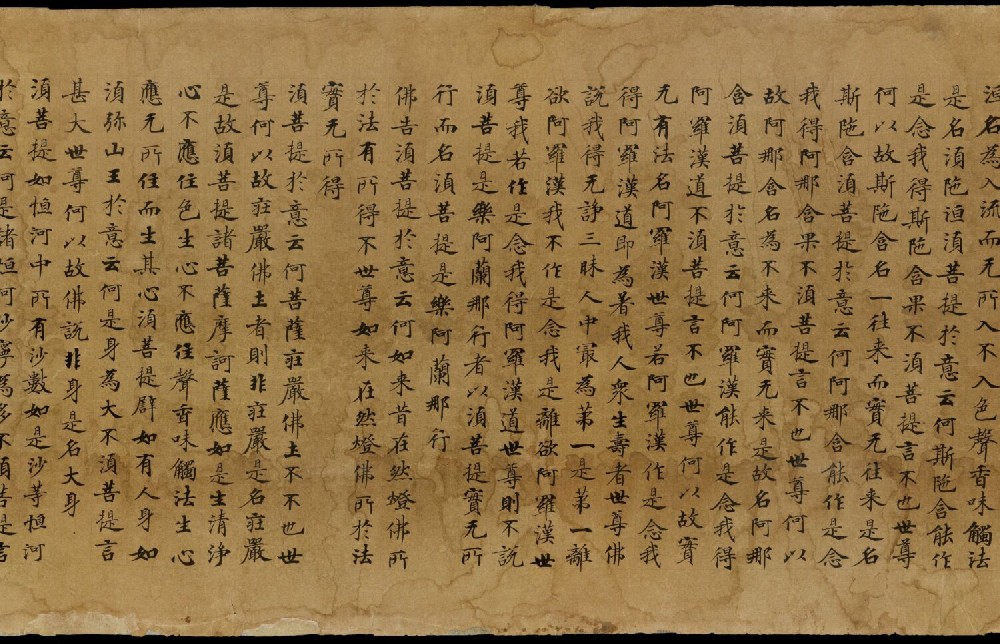 洹名為入流而无所入不入色聲香味觸法
是名須陁洹須菩提於意云何斯陁含能作
是念我得斯陁含果不須菩提言不也世尊
何以故斯陁含名一往来而實无往来是名
斯陁含須菩提於意云何阿那含能作是念
我得阿那含果不須菩提言不也世尊何以
故阿那含名為不来而實无来是故名阿那
含須菩提於意云何阿羅漢能作是念我得
阿羅漢道不須菩提言不也世尊何以故實
无有法名阿羅漢世尊若阿羅漢作是念我
得阿羅漢道即為著我人衆生壽者世尊佛
說我得无諍三昧人中冣為苐一是苐一離
欲阿羅漢我不作是念我是離欲阿羅漢世
尊我若作是念我得阿羅漢道世尊則不說
須菩提是樂阿蘭那行者以須菩提實无所
行而名須菩提是樂阿蘭那行
佛告須菩提於意云何如来昔在然燈佛所
於法有所得不世尊如来在然燈佛所於法
實无所得
須菩提於意云何菩薩莊嚴佛土不不也世
尊何以故莊嚴佛土者則非莊嚴是名莊嚴
是故須菩提諸菩薩摩訶薩應如是生清淨
心不應住色生心不應住聲香味觸法生心
應无所住而生其心須菩提辟如有人身如
須弥山王於意云何是身為大不須菩提言
甚大世尊何以故佛說非身是名大身
須菩提如恒河中所有沙數如是沙等恒河
於意云何是諸恒河沙寧為多不須菩提言